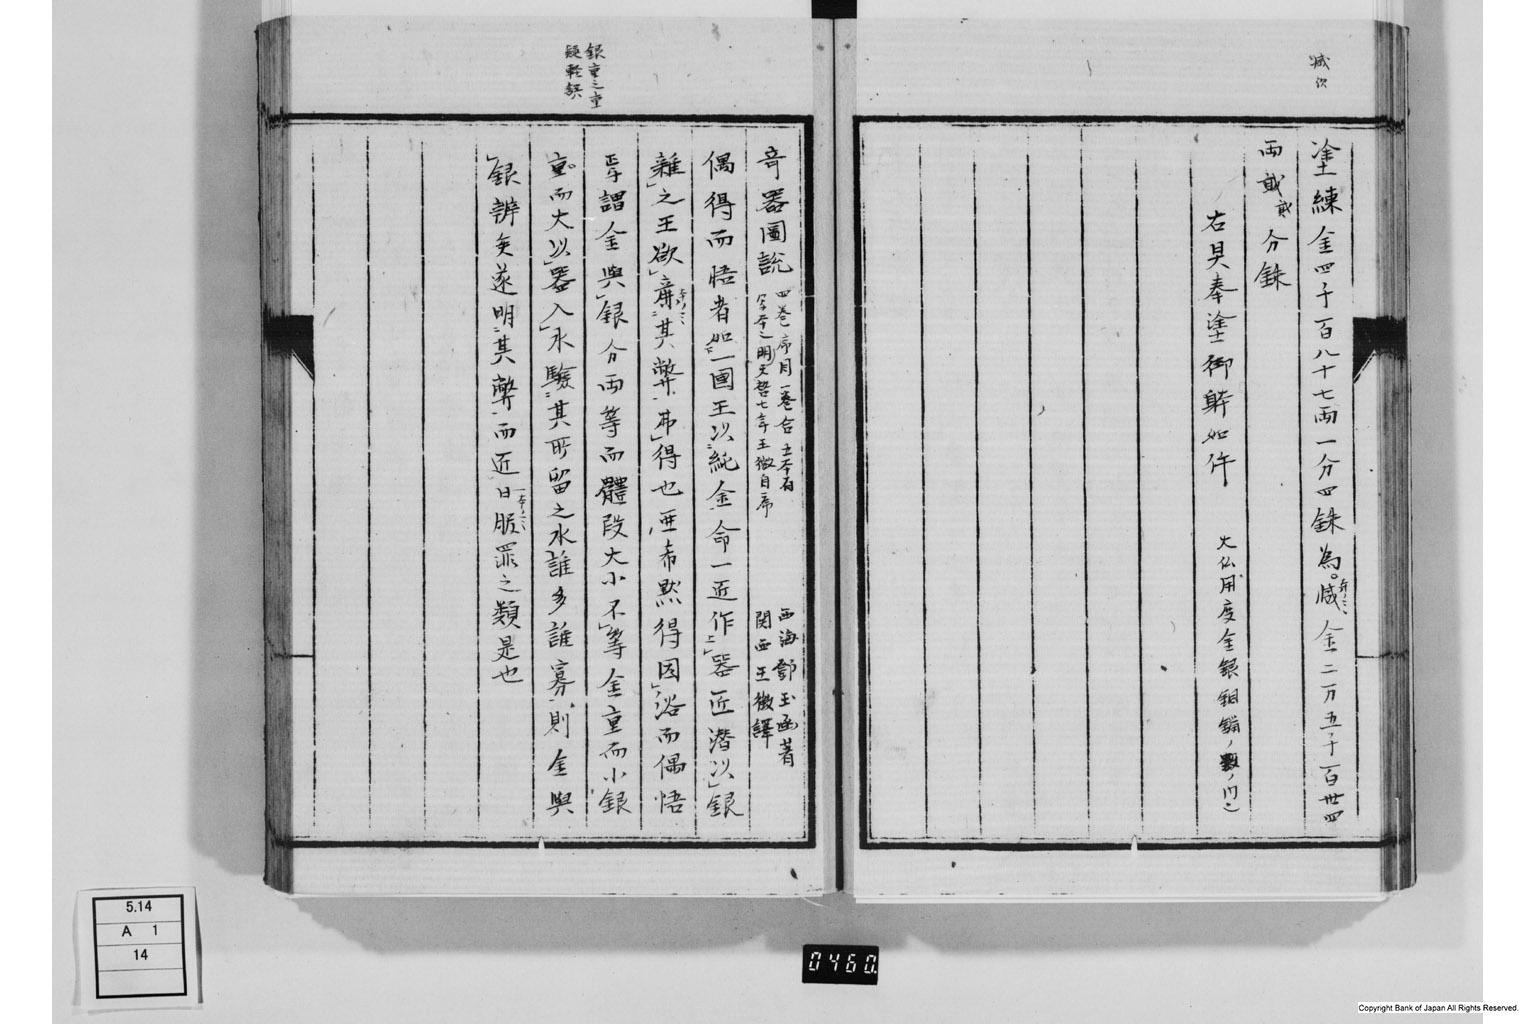 減
塗練金四千百八十七両一分四銖為滅金二万五千百卅四
両貮分銖
右具奉塗御躰如件
大仏用度金銀銅錫ノ数ノ内
奇器圖説
四巻序目一巻合五本有
西海鄧玉函著
関西王徴譯
銀重之重
疑軽誤
偶得而悟者如一國王以純金命一近作器匠潜以銀
雑之王欲廉其弊弗得也亜希黙得因浴而偶悟
謂金與銀分両等而體段大小不等金重而小銀
重而大以器入水驗其所留之水誰多誰寡則金與
銀辨矣遂明其弊而近日服罪之類是也
5.14
A 1
14
0460
Copyright Bank of Japan All Rights Reserved.